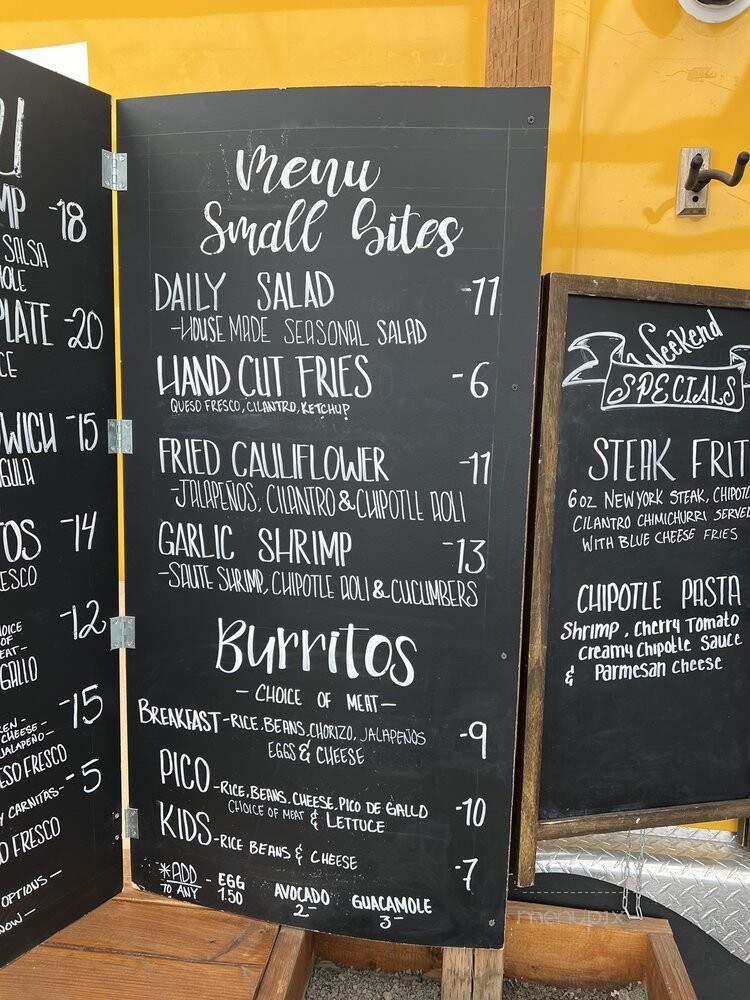 U
MP -18
SALSA
OLE
PLATE -20
CE
WICH -15
GULA
TOS -14
ESCO
-12
OICE
OF
EAT-
GALLO
-15
EN-
CHEESE-
JALAPEÑO-
ESO FRESCO
-5
Y CARNITAS-
O FRESCO
OPTIONS-
NOW-
Menu
Small Bites
DAILY SALAD -11
-HOUSE MADE SEASONAL SALAD
HAND CUT FRIES -6
QUESO FRESCO, CILANTRO, KETCHUP
FRIED CAULIFLOWER -11
-JALAPEÑOS, CILANTRO & CHIPOTLE AOLI
GARLIC SHRIMP -13
-SAUTE SHRIMP, CHIPOTLE AOLI & CUCUMBERS
Burritos
- CHOICE OF MEAT -
BREAKFAST - RICE, BEANS, CHORIZO, JALAPEÑOS -9
EGGS & CHEESE
PICO - RICE, BEANS, CHEESE, PICO DE GALLO -10
CHOICE OF MEAT & LETTUCE
KIDS - RICE BEANS & CHEESE -7
*ADD - EGG AVOCADO GUACAMOLE
TO ANY 1.50 2- 3-
Weekend
SPECIALS
STEAK FRIT
6 OZ NEW YORK STEAK, CHIPOTL
CILANTRO CHIMICHURRI SERVED
WITH BLUE CHEESE FRIES
CHIPOTLE PASTA
Shrimp, Cherry Tomato
Creamy Chipotle Sauce
& Parmesan Cheese
menupix